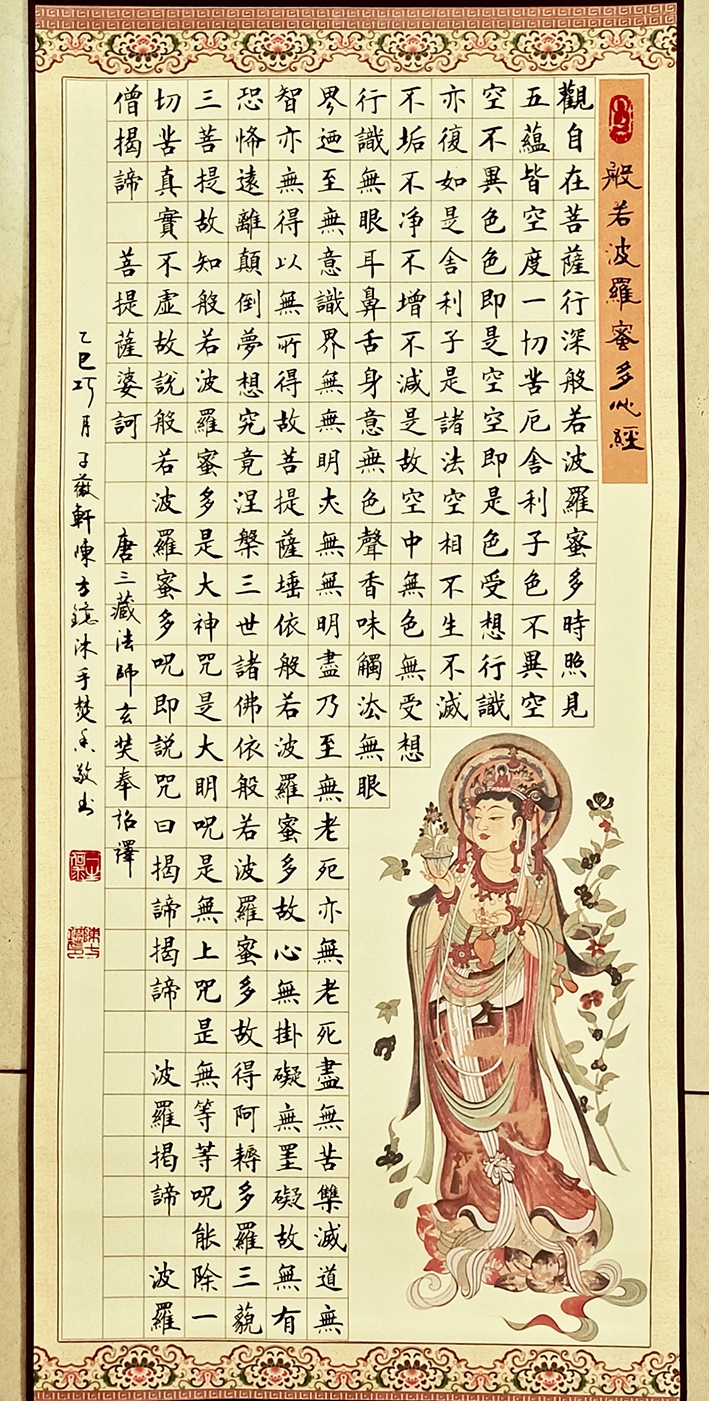 般若波羅蜜多心經
觀自在菩薩行深般若波羅蜜多時照見
五蘊皆空度一切苦厄舍利子色不異空
空不異色色即是空空即是色受想行識
亦復如是舍利子是諸法空相不生不滅
不垢不净不增不減是故空中無色無受想
行識無眼耳鼻舌身意無色聲香味觸法無眼
界迺至無意識界無無明亦無無明盡乃至無老死亦無老死盡無苦集滅道無
智亦無得以無所得故菩提薩埵依般若波羅蜜多故心無掛礙無罣礙故無有
恐怖遠離顛倒夢想究竟涅槃三世諸佛依般若波羅蜜多故得阿耨多羅三藐
三菩提故知般若波羅蜜多是大神咒是大明呪是無上咒是無等等呪能除一
切苦真實不虛故說般若波羅蜜多呪即說咒曰揭諦揭諦 波羅揭諦 波羅
僧揭諦 菩提薩婆訶 唐三藏法師玄奘奉詔譯
乙巳巧月子薇軒陳方沐手焚香敬书